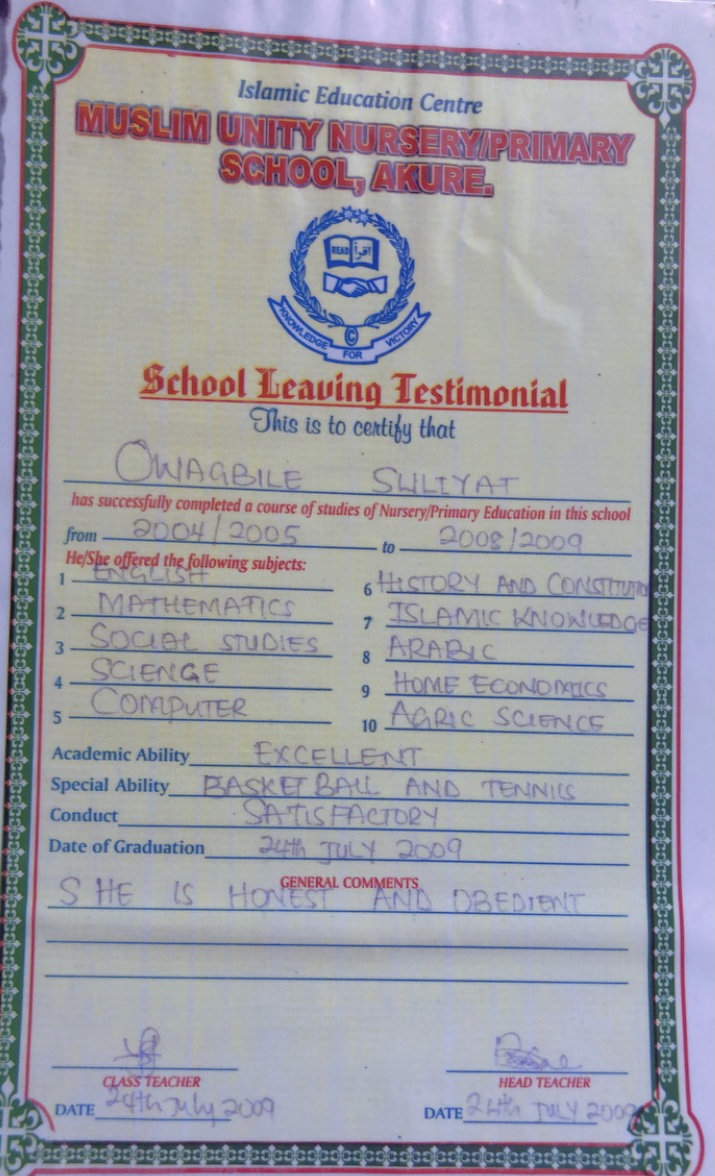 Islamic Education Centre
MUSLIM UNITY NURSERY/PRIMARY
SCHOOL, AKURE.
READ اقرأ
KNOWLEDGE FOR VICTORY
School Leaving Testimonial
This is to certify that
OWAGBILE SULIYAT
has successfully completed a course of studies of Nursery/Primary Education in this school
from 2004/2005 to 2008/2009
He/She offered the following subjects:
1 ENGLISH
2 MATHEMATICS
3 SOCIAL STUDIES
4 SCIENCE
5 COMPUTER
6 HISTORY AND CONSTITUTION
7 ISLAMIC KNOWLEDGE
8 ARABIC
9 HOME ECONOMICS
10 AGRIC SCIENCE
Academic Ability EXCELLENT
Special Ability BASKET BALL AND TENNIS
Conduct SATISFACTORY
Date of Graduation 24th JULY 2009
GENERAL COMMENTS
SHE IS HONEST AND OBEDIENT
CLASS TEACHER
DATE 24th July 2009
HEAD TEACHER
DATE 24th JULY 2009